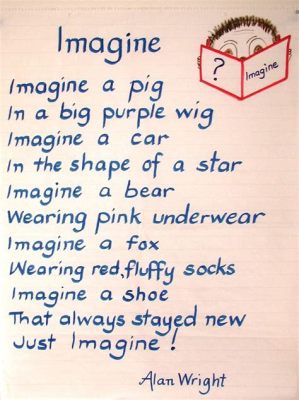 Imagine
?
Imagine
Imagine a pig
In a big purple wig
Imagine a car
In the shape of a star
Imagine a bear
Wearing pink underwear
Imagine a fox
Wearing red, fluffy socks
Imagine a shoe
That always stayed new
Just Imagine!
Alan Wright